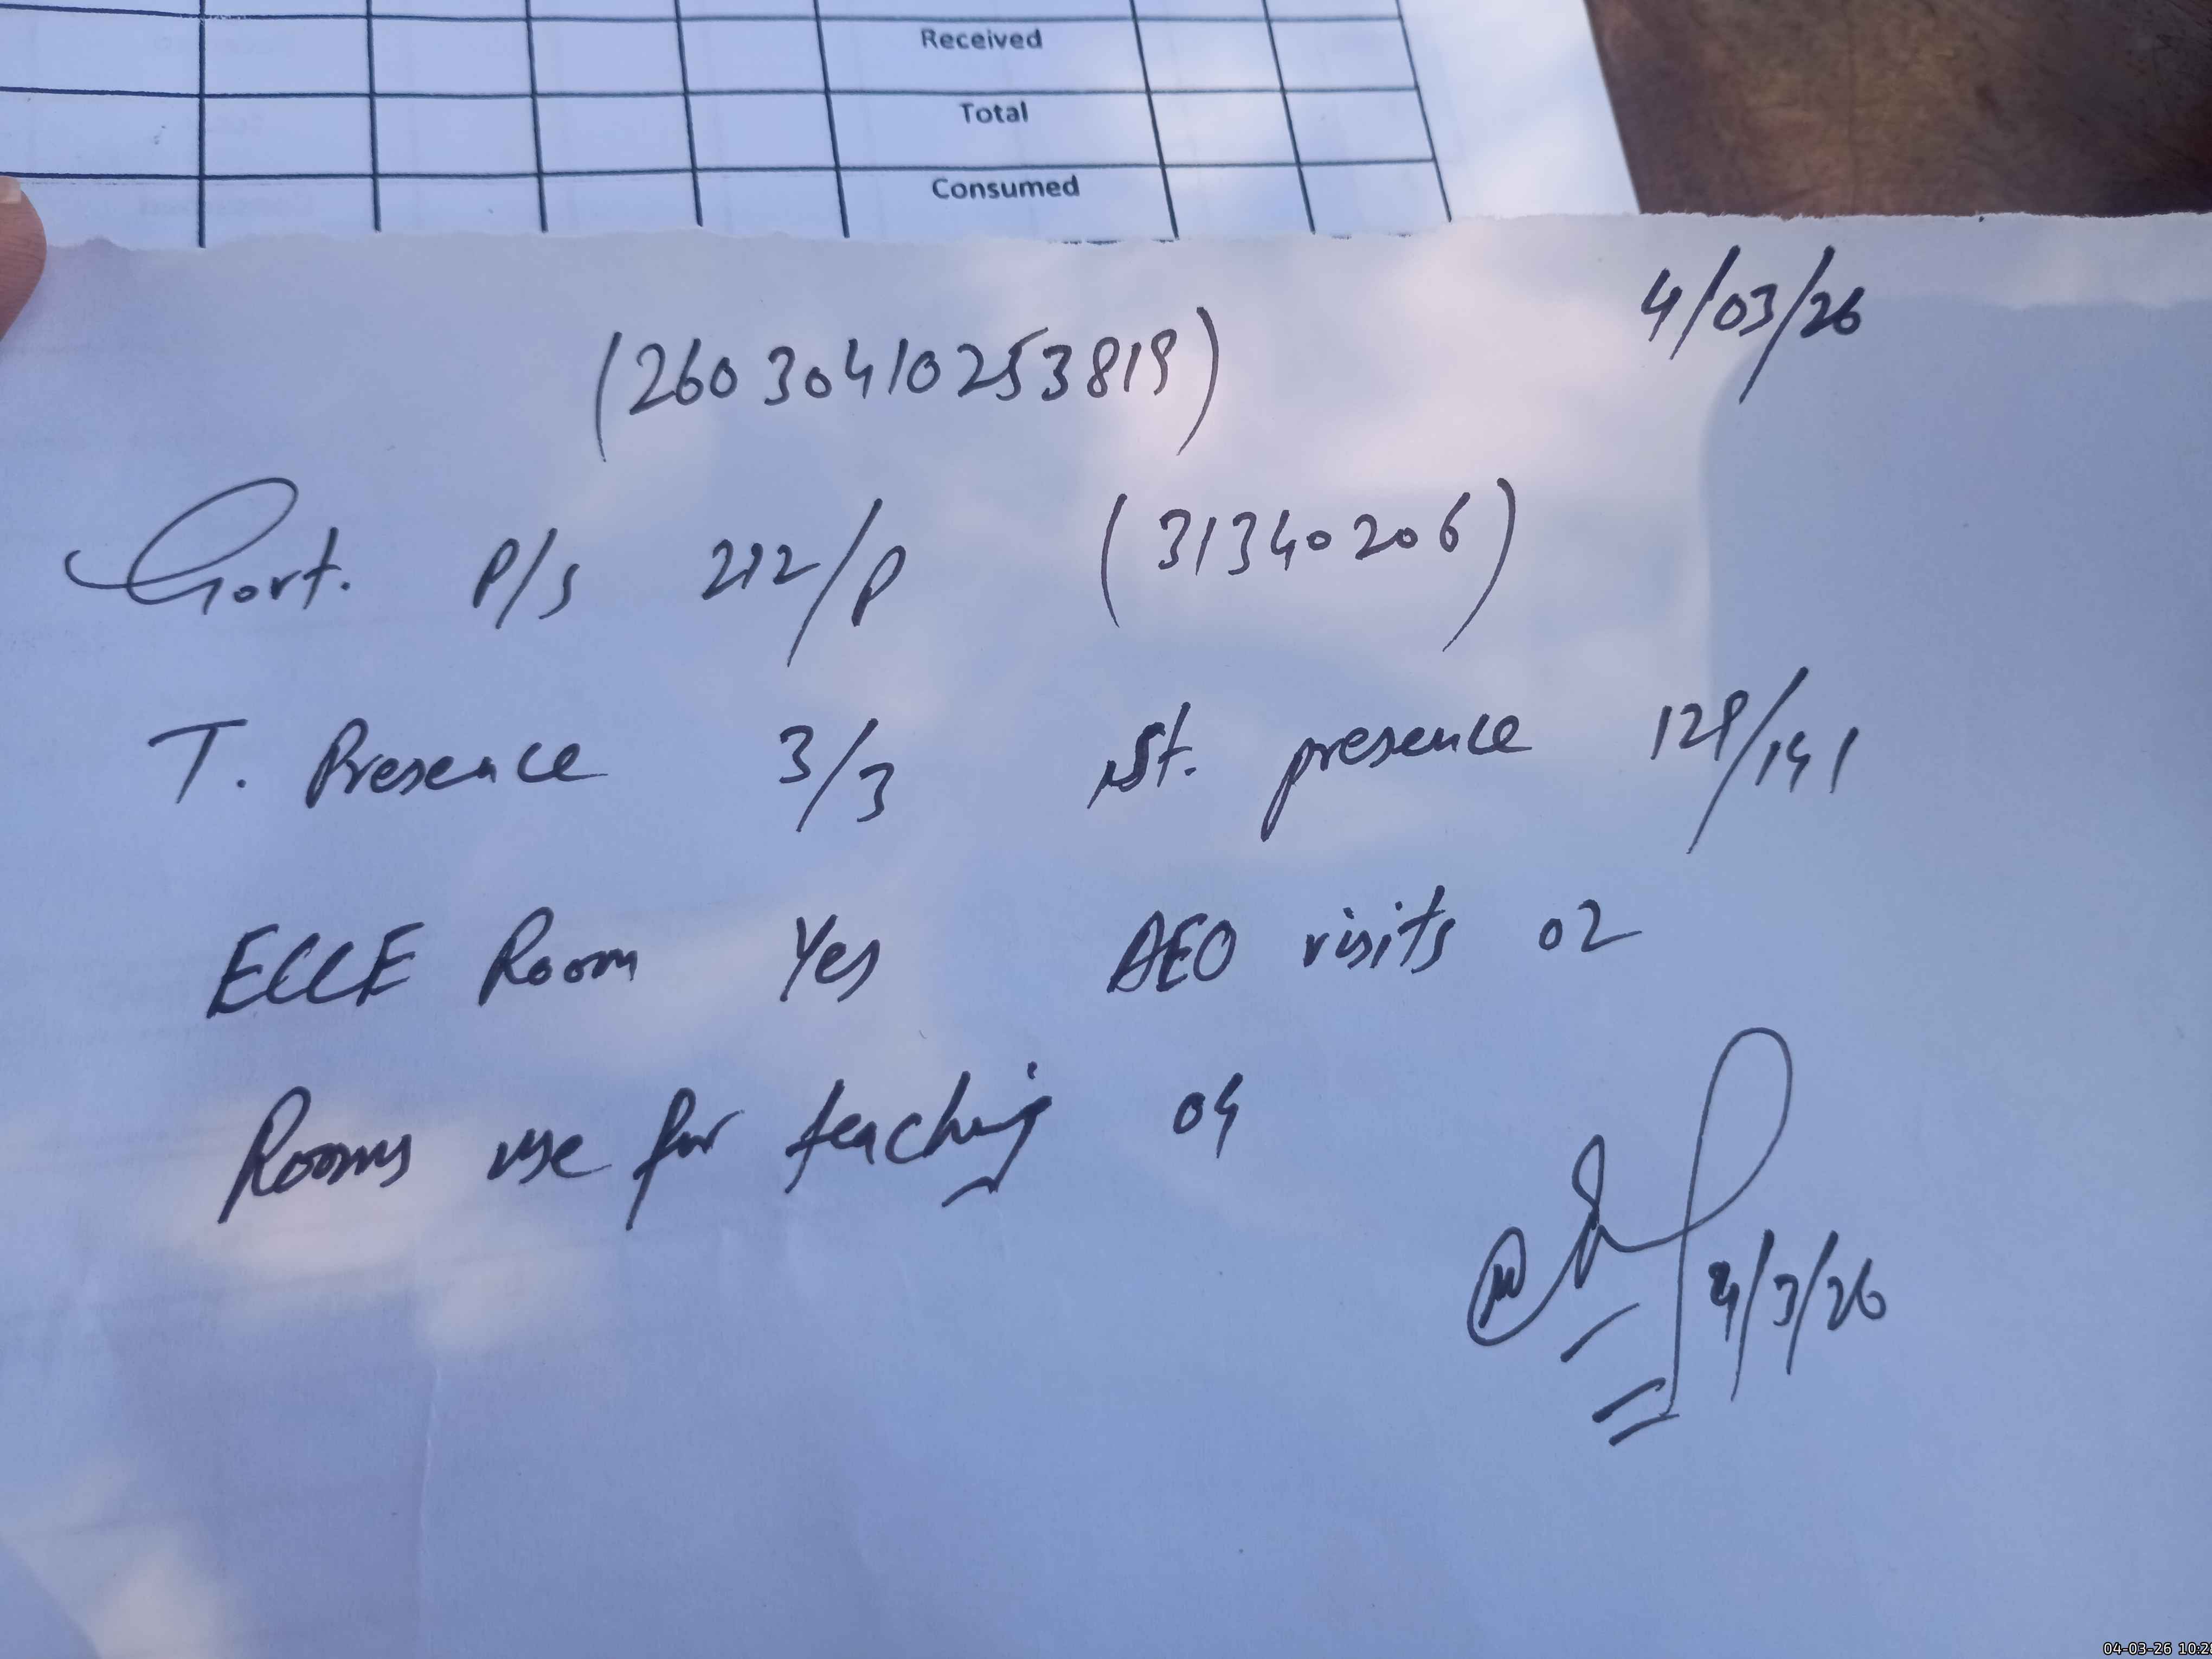 Received
Total
Consumed
4/03/26
(26030410253819)
Govt. P/s 212/P (31340206)
T. Presence 3/3 st. presence 129/141
ECCE Room Yes AEO visits 02
Rooms use for teaching 04
4/3/26
04-03-26 10:2